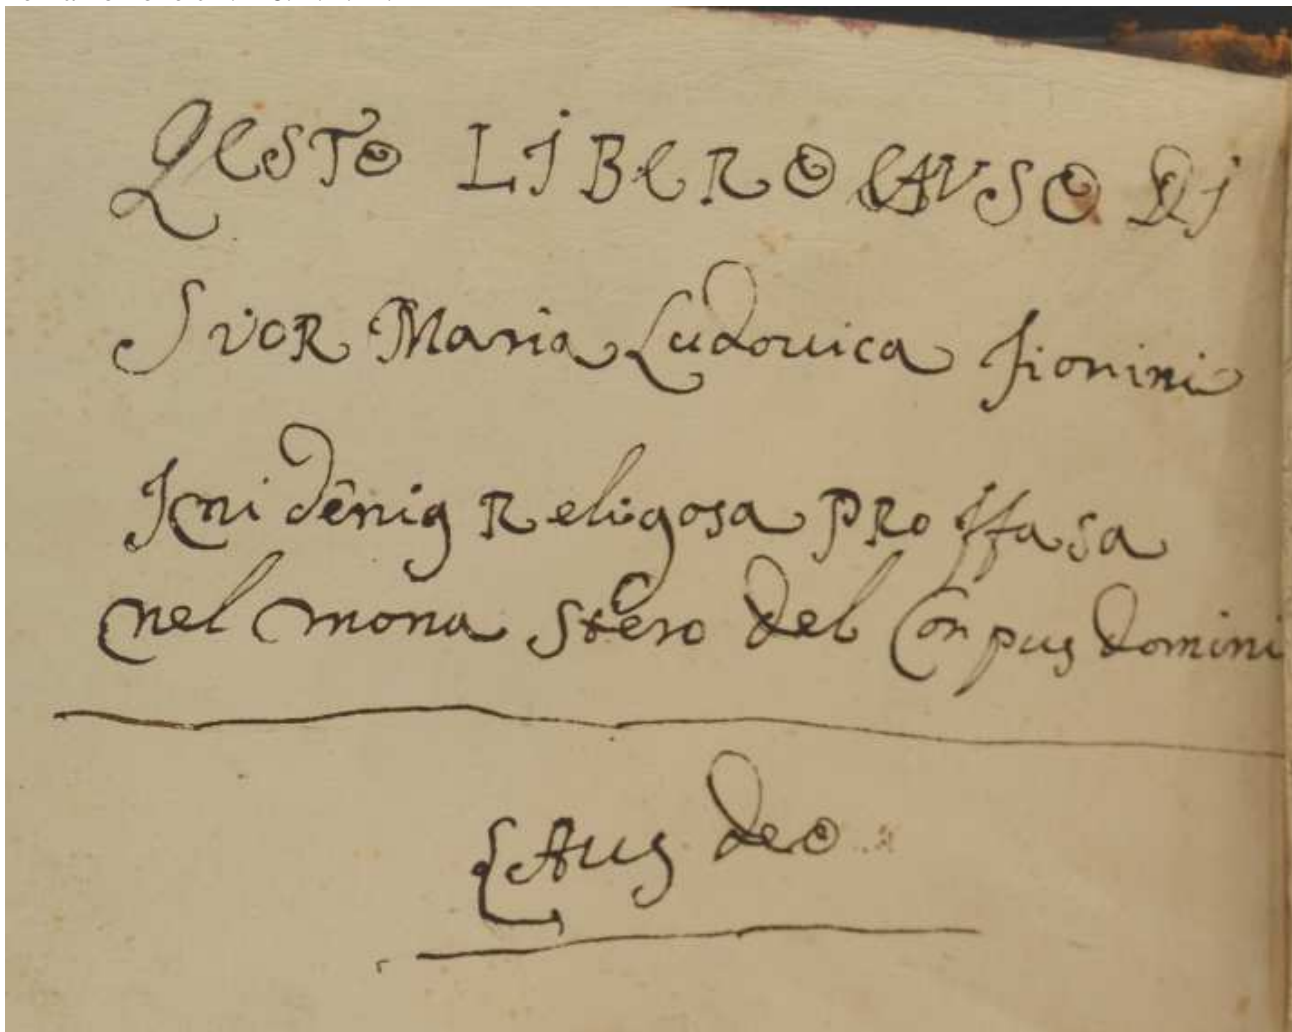 QESTO LIBERO EAUSO DI
SUOR Maria Ludouica fionini
Religosa PRoffasa
nel mona stero del Corpus domini
LAus deo